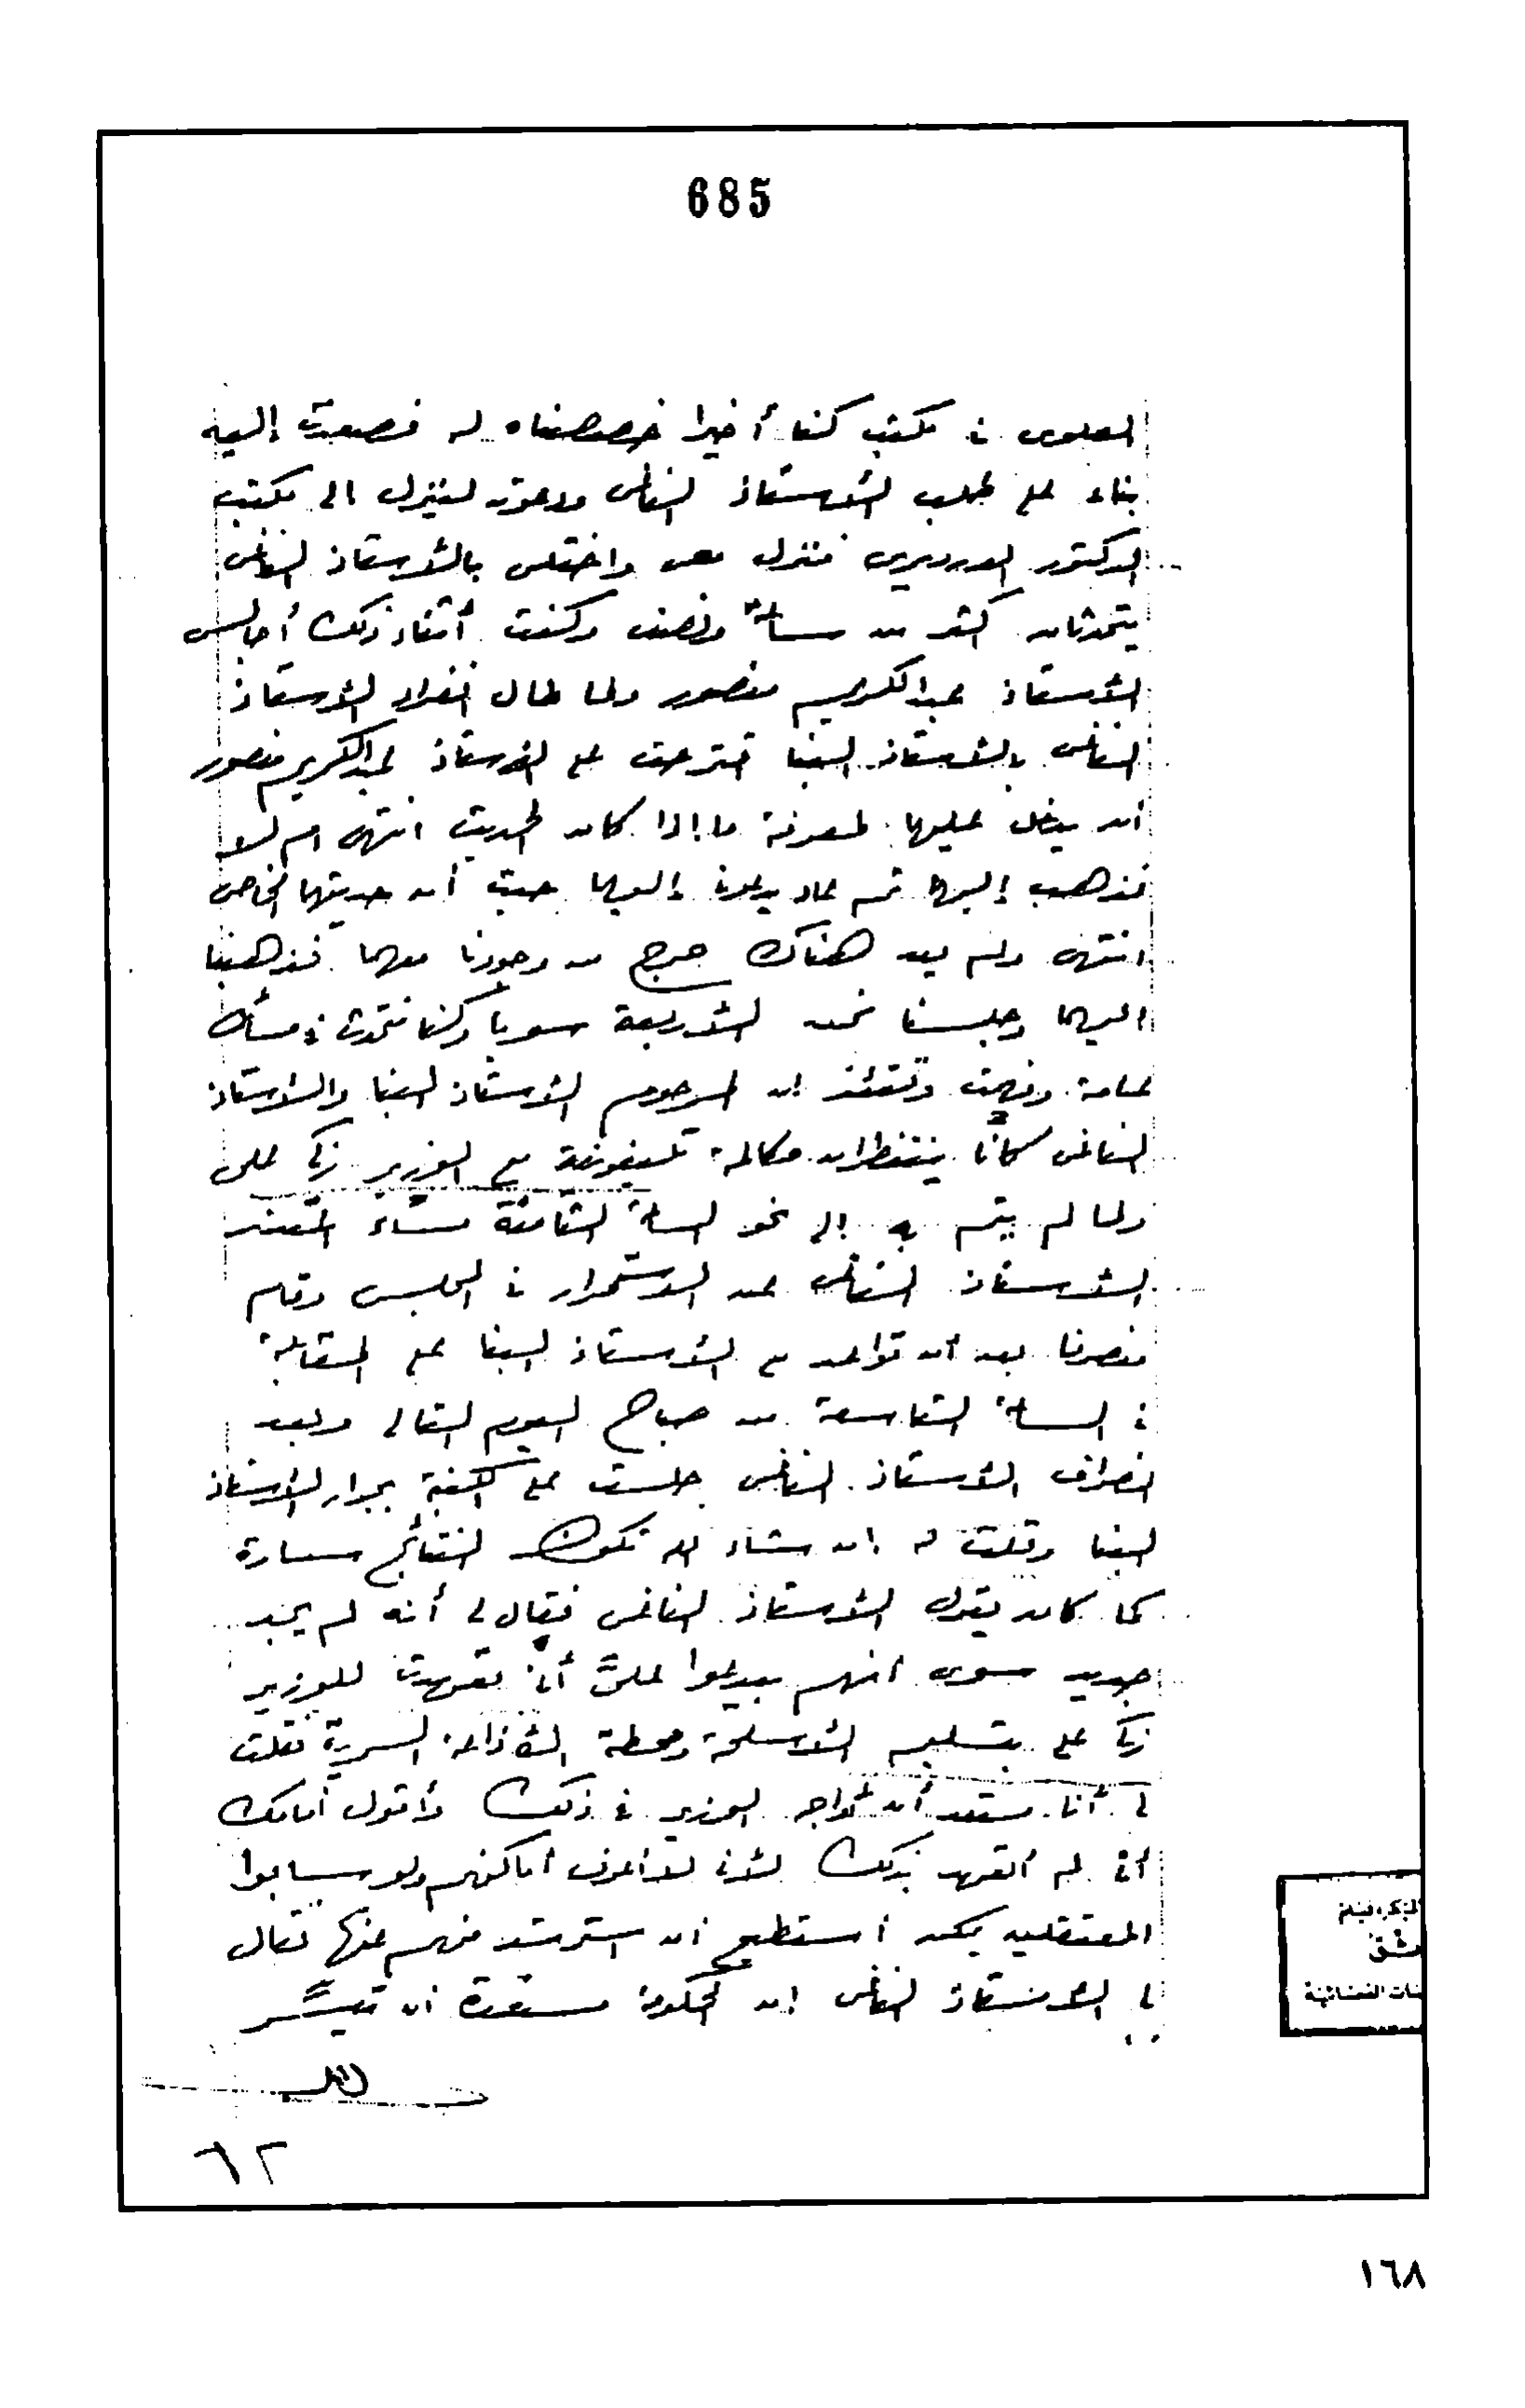 685
العلوى فى مكتب كنا أخيرا خصصناه له فصعدت إليه
بناء على طلب الأستاذ الناغى ودعوته لينزل الى مكتب
الدكتور الدرديرى فنزل معى واختلى بالأستاذ الناغى
يتحدثان أكثر من ساعة ونصف وكنت أثناء ذلك أجالس
الأستاذ عبد الكريم منصور ولما طال انفراد الأستاذ
الناغى بالأستاذ البنا اقترحت على الأستاذ عبد الكريم منصور
أن يدخل عليهما لمعرفة ما إذا كان الحديث انتهى أم لا
فذهب إليهما ثم عاد يدعونى إليهما حيث أن حديثهما الخاص
انتهى ولم يعد هناك حرج من وجودنا معهما فذهبنا
اليهما وجلسنا نحن الأربعة سويا وكنا نتحدث فى مسألة
عامة وفهمت وقتئذ ان المرحوم الأستاذ البنا والأستاذ
الناغى كانا ينتظران مكالمة تليفونية مع الوزير زكى على
ولما لم يتم به إلى نحو الساعة الثامنة مساء اعتذر
الأستاذ الناغى عن الاستمرار فى المجلس وقام
منصرفا بعد أن تواعد مع الأستاذ البنا على المقابلة
فى الساعة التاسعة من صباح اليوم التالى وبعد
انصراف الأستاذ الناغى جلست على الكنبة بجوار الأستاذ
البنا وقلت له ان شاء الله تكون النتائج سارة
كما كان يقول الأستاذ الناغى فقال لى أنه لم يجد
جديد سوى انهم بيدعوا علىّ أنى تعهدت للوزير
زكى على بتسليم الأسلحة ومحطة الاذاعة السرية فقلت
له أنا مستعد أن أواجه الوزير فى ذلك وأقول أمامك
أنى لم أتعهد بذلك لأنى لا أعرف أماكنهم ولو سابوا
المعتقلين يمكن أستطيع ان استرشد منهم عنها فقال
لى الأستاذ الناغى ان الحكومة مستعدة ان تيسّر
٦٢
١٦٨